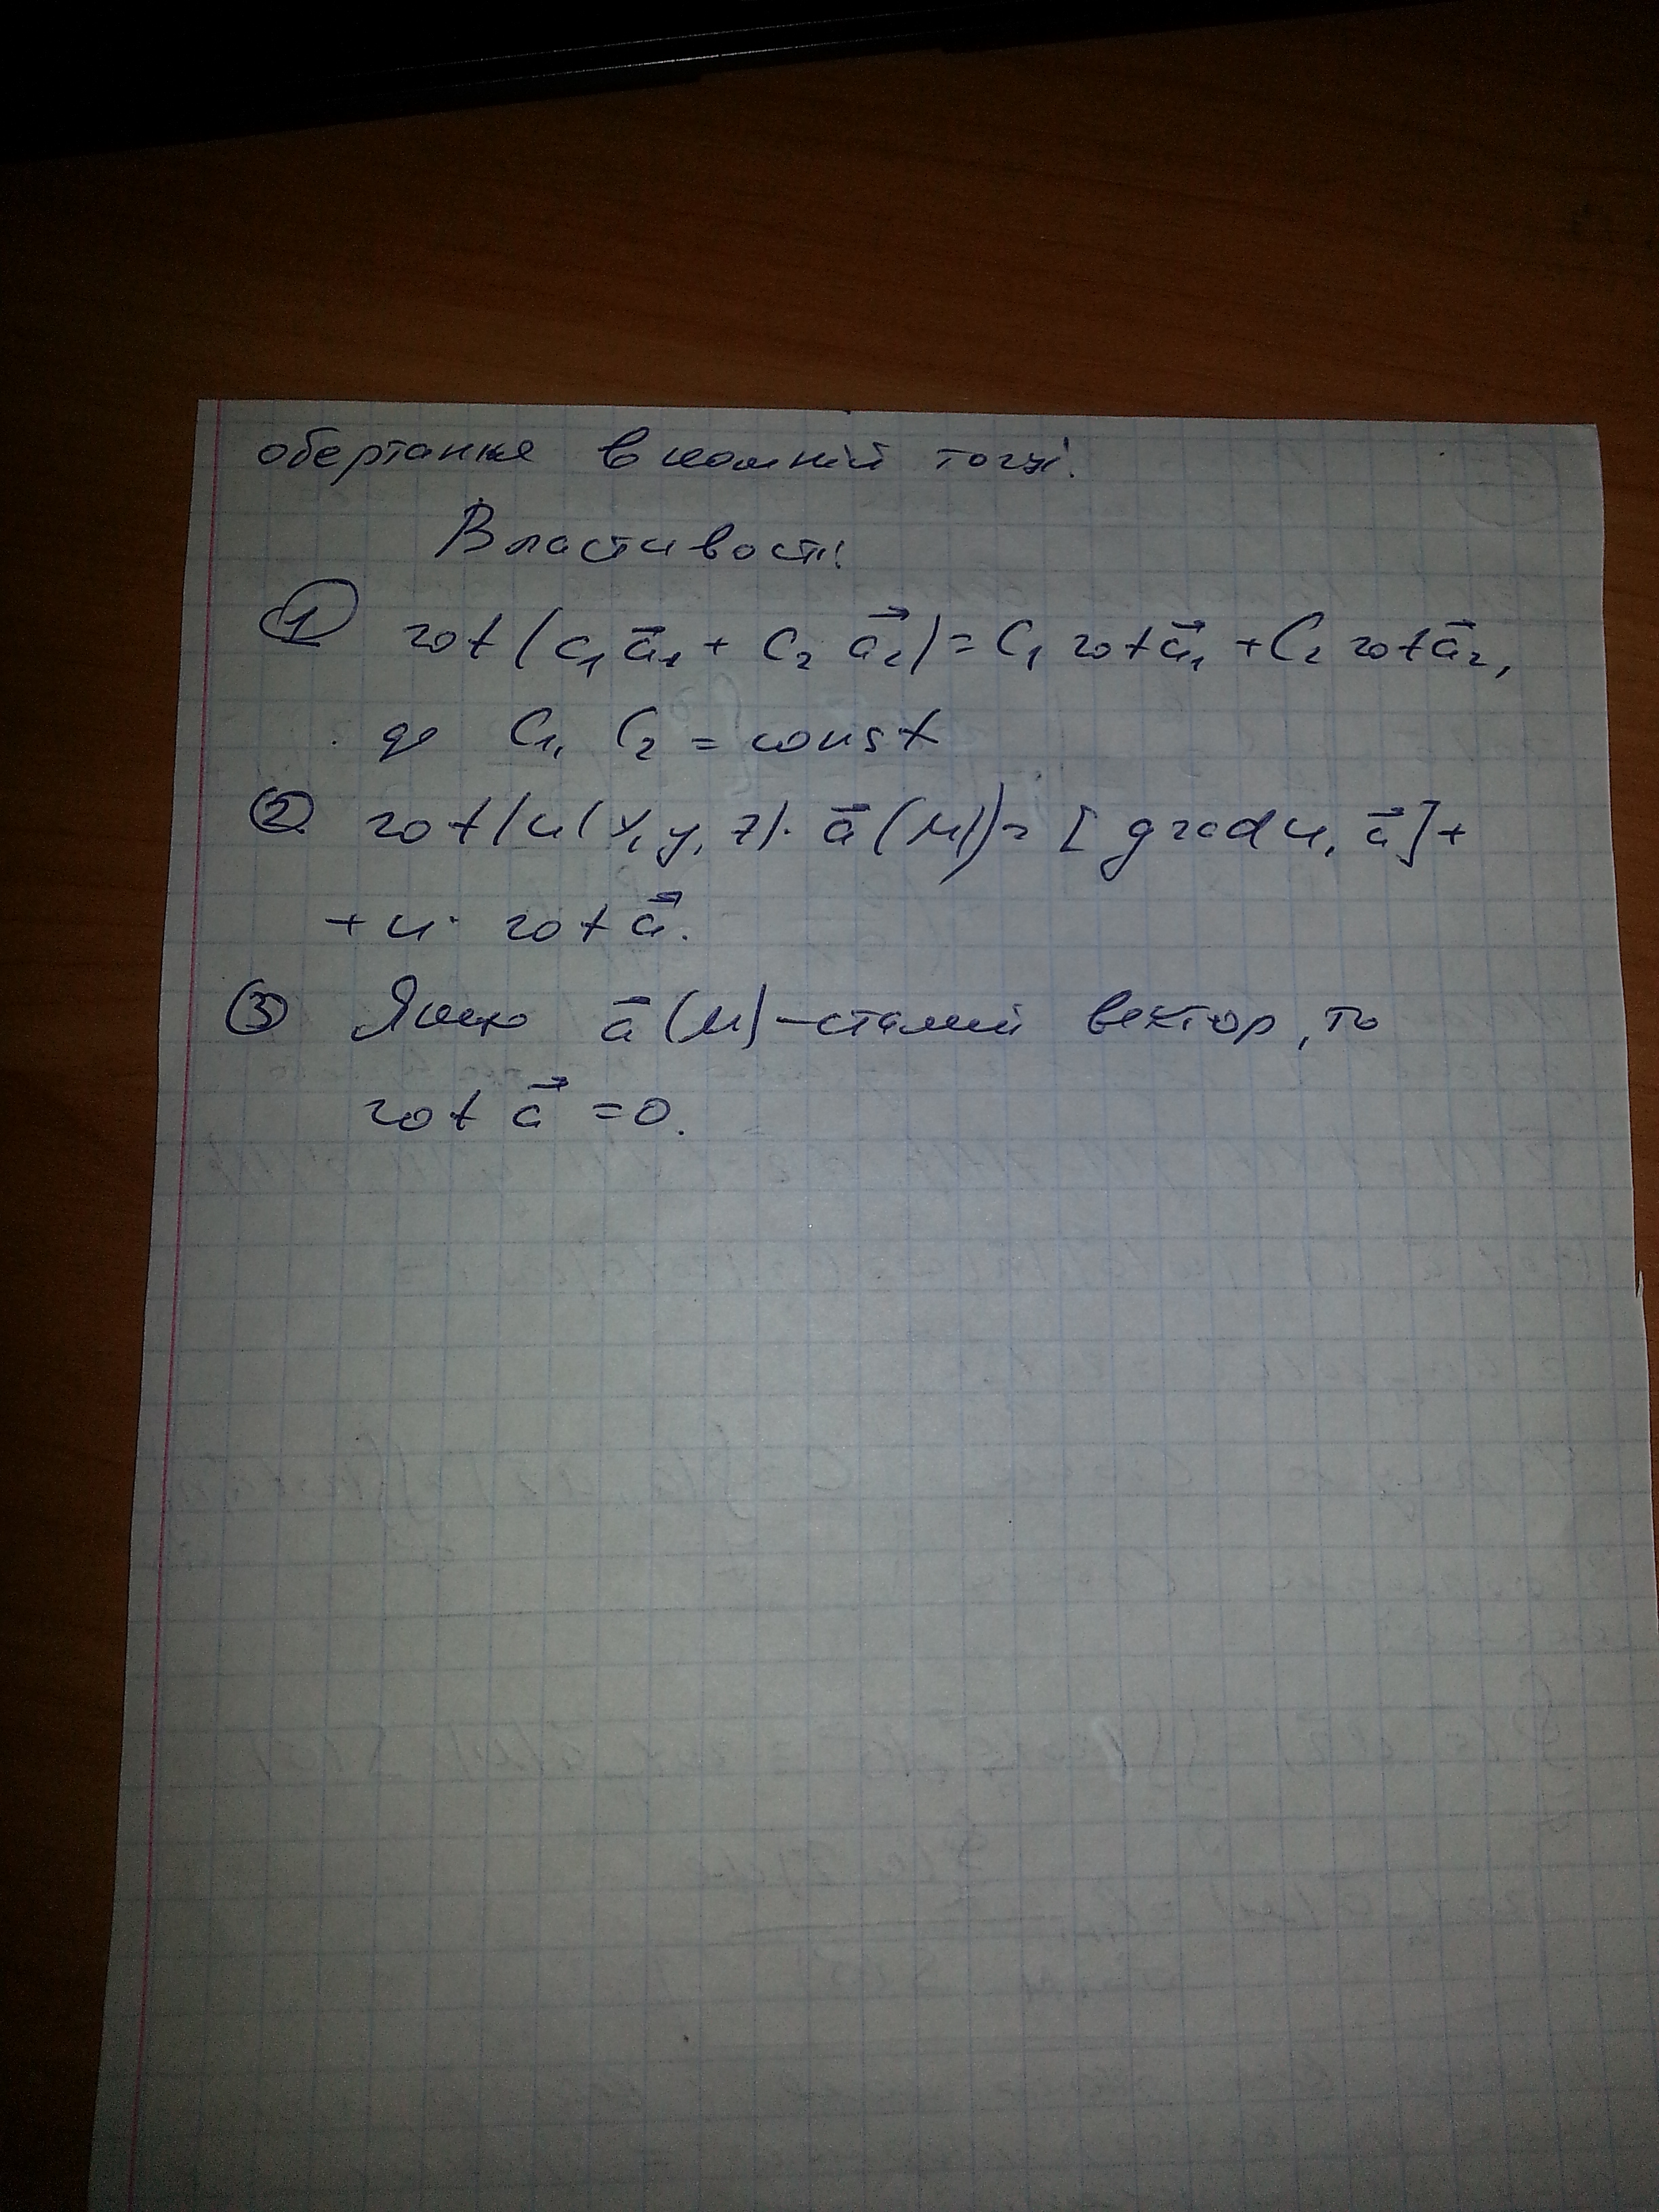 обертання в кожній точці.
Властивості:
① rot(c₁a⃗₁ + c₂ a⃗₂) = c₁ rot a⃗₁ + c₂ rot a⃗₂,
де c₁, c₂ = const
② rot(u(x, y, z) · a⃗(M)) = [grad u, a⃗] +
+ u · rot a⃗.
③ Якщо a⃗(M) – сталий вектор, то
rot a⃗ = 0.